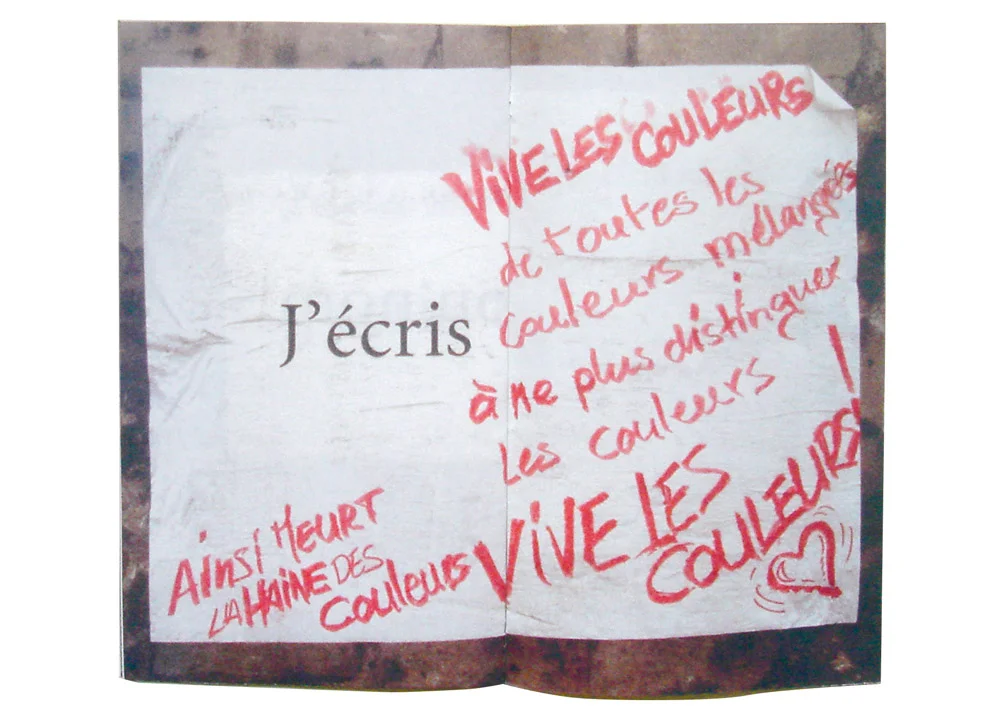 J'écris
VIVE LES COULEURS
de toutes les
couleurs mélangées
à ne plus distinguer
Les couleurs !
VIVE LES
COULEURS!
AINSI MEURT
LA HAINE DES
COULEURS